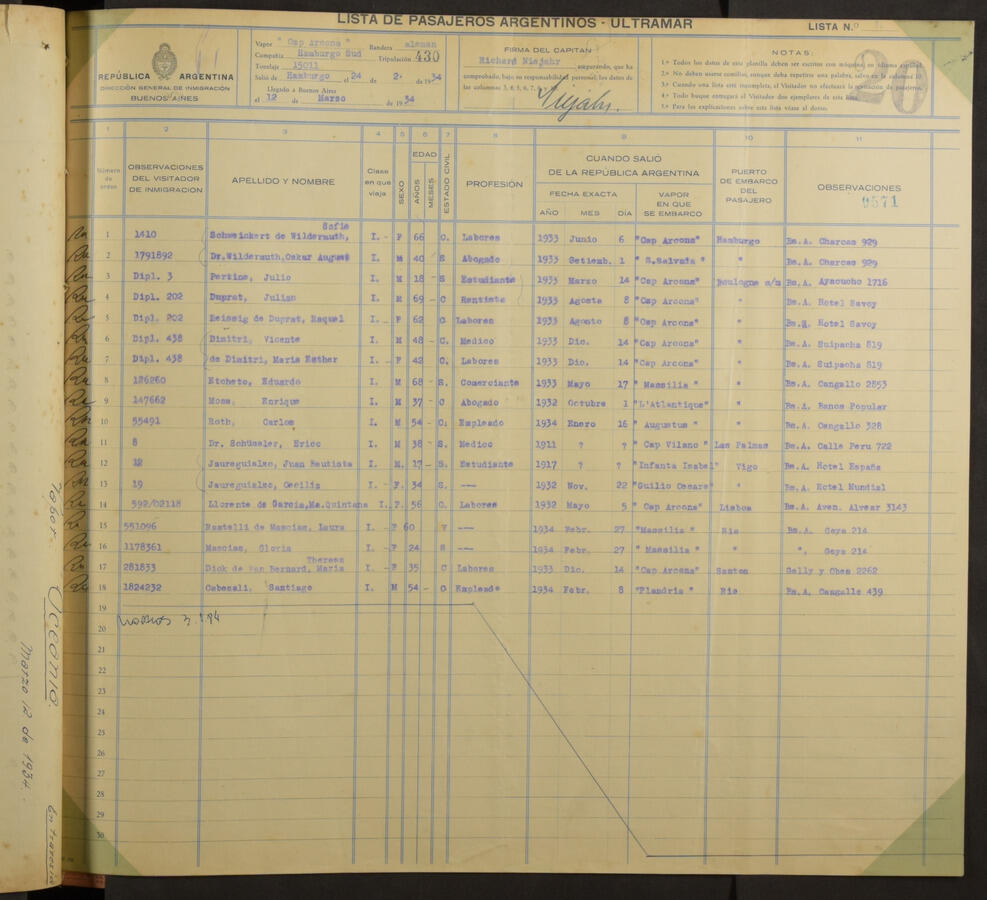 LISTA DE PASAJEROS ARGENTINOS - ULTRAMAR
LISTA N.º
REPÚBLICA ARGENTINA
DIRECCIÓN GENERAL DE INMIGRACIÓN
BUENOS AIRES
Vapor "Cap Arcona" Bandera aleman
Compañia Hamburgo Sud Tripulación 430
Tonelaje 15011
Salió de Hamburgo el 24 de 2. de 1934
Llegado a Buenos Aires
el 12 de Marzo de 1934
FIRMA DEL CAPITAN
Richard Niejahr asegurando, que ha
comprobado, bajo su responsabilidad personal, los datos de
las columnas 3, 4, 5, 6, 7, 8
Niejahr.
NOTAS:
1.ª Todos los datos de esta planilla deben ser escritos con máquina en idioma español
2.ª No deben usarse comillas, aunque deba repetirse una palabra, salvo en la columna 10.
3.ª Cuando una lista esté incompleta, el Visitador no efectuará la operación de pasajeros.
4.ª Todo buque entregará al Visitador dos ejemplares de esta lista.
5.ª Para las explicaciones sobre esta lista véase al dorso.
20
1 2 3 4 5 6 7 8 9 10 11
Número de orden
OBSERVACIONES DEL VISITADOR DE INMIGRACION
APELLIDO Y NOMBRE
Clase en que viaja
SEXO
EDAD
AÑOS
MESES
ESTADO CIVIL
PROFESIÓN
CUANDO SALIÓ DE LA REPÚBLICA ARGENTINA
FECHA EXACTA
AÑO MES DÍA
VAPOR EN QUE SE EMBARCO
PUERTO DE EMBARCO DEL PASAJERO
OBSERVACIONES
9571
Sofie
1 1410 Schweickert de Wildermuth, I. - F 66 C. Labores 1933 Junio 6 "Cap Arcona" Hamburgo Bs.A. Charcas 929
2 1791892 Dr.Wildermuth,Oskar August I. M 40 S Abogado 1933 Setiemb. 1 "S.Salvada" " Bs.A. Charcas 929
3 Dipl. 3 Perkins, Julio I. M 18 - S Estudiante 1933 Marzo 14 "Cap Arcona" Boulogne s/m Bs.A. Ayacucho 1716
4 Dipl. 202 Duprat, Julian I. M 69 - C Rentista 1933 Agosto 8 "Cap Arcona" " Bs.A. Hotel Savoy
5 Dipl. 202 Reissig de Duprat, Raquel I. F 62 C Labores 1933 Agosto 8 "Cap Arcona" " Bs.A. Hotel Savoy
6 Dipl. 438 Dimitri, Vicente I. M 48 - C. Medico 1933 Dic. 14 "Cap Arcona" " Bs.A. Suipacha 819
7 Dipl. 438 de Dimitri, Maria Esther I. - F 42 C. Labores 1933 Dic. 14 "Cap Arcona" " Bs.A. Suipacha 819
8 126260 Etcheto, Eduardo I. M 68 - S. Comerciante 1933 Mayo 17 "Massilia" " Bs.A. Cangallo 2853
9 147662 Moss, Enrique I. M 37 - C Abogado 1932 Octubre 1 "L'Atlantique" " Bs.A. Banco Popular
10 55491 Roth, Carlos I. M 54 - C. Empleado 1934 Enero 16 "Augustus" " Bs.A. Cangallo 328
11 8 Dr. Schüssler, Eric I. - M 38 - S. Medico 1911 ? ? "Cap Vilano" Las Palmas Bs.A. Calle Peru 722
12 12 Jaureguialzo, Juan Bautista I. M. 17 - S. Estudiante 1917 ? ? "Infanta Isabel" Vigo Bs.A. Hotel España
13 19 Jaureguialzo, Cecilia I. - F. 34 S. --- 1932 Nov. 22 "Guilio Cesare" " Bs.A. Hotel Mundial
14 592/02118 Llorente de Garcia,Ma.Quintana I. F. 56 C. Labores 1932 Mayo 5 "Cap Arcona" Lisboa Bs.A. Aven. Alvear 3143
15 551096 Rastelli de Mascias, Laura I. - F 60 V --- 1934 Febr. 27 "Massilia" Rio Bs.A. Goya 214
16 1178361 Mascias, Gloria I. - F 24 S --- 1934 Febr. 27 "Massilia" " ", Goya 214
Theresa
17 281833 Dick de Van Bernard, Maria I. - F 35 C Labores 1933 Dic. 14 "Cap Arcona" Santos Gelly y Obes 2262
18 1824232 Cabezali, Santiago I. M 54 - C Empleado 1934 Febr. 8 "Flandria" Rio Bs.A. Cangallo 439
19
20
21
22
23
24
25
26
27
28
29
30
Marzo 12 de 1934.